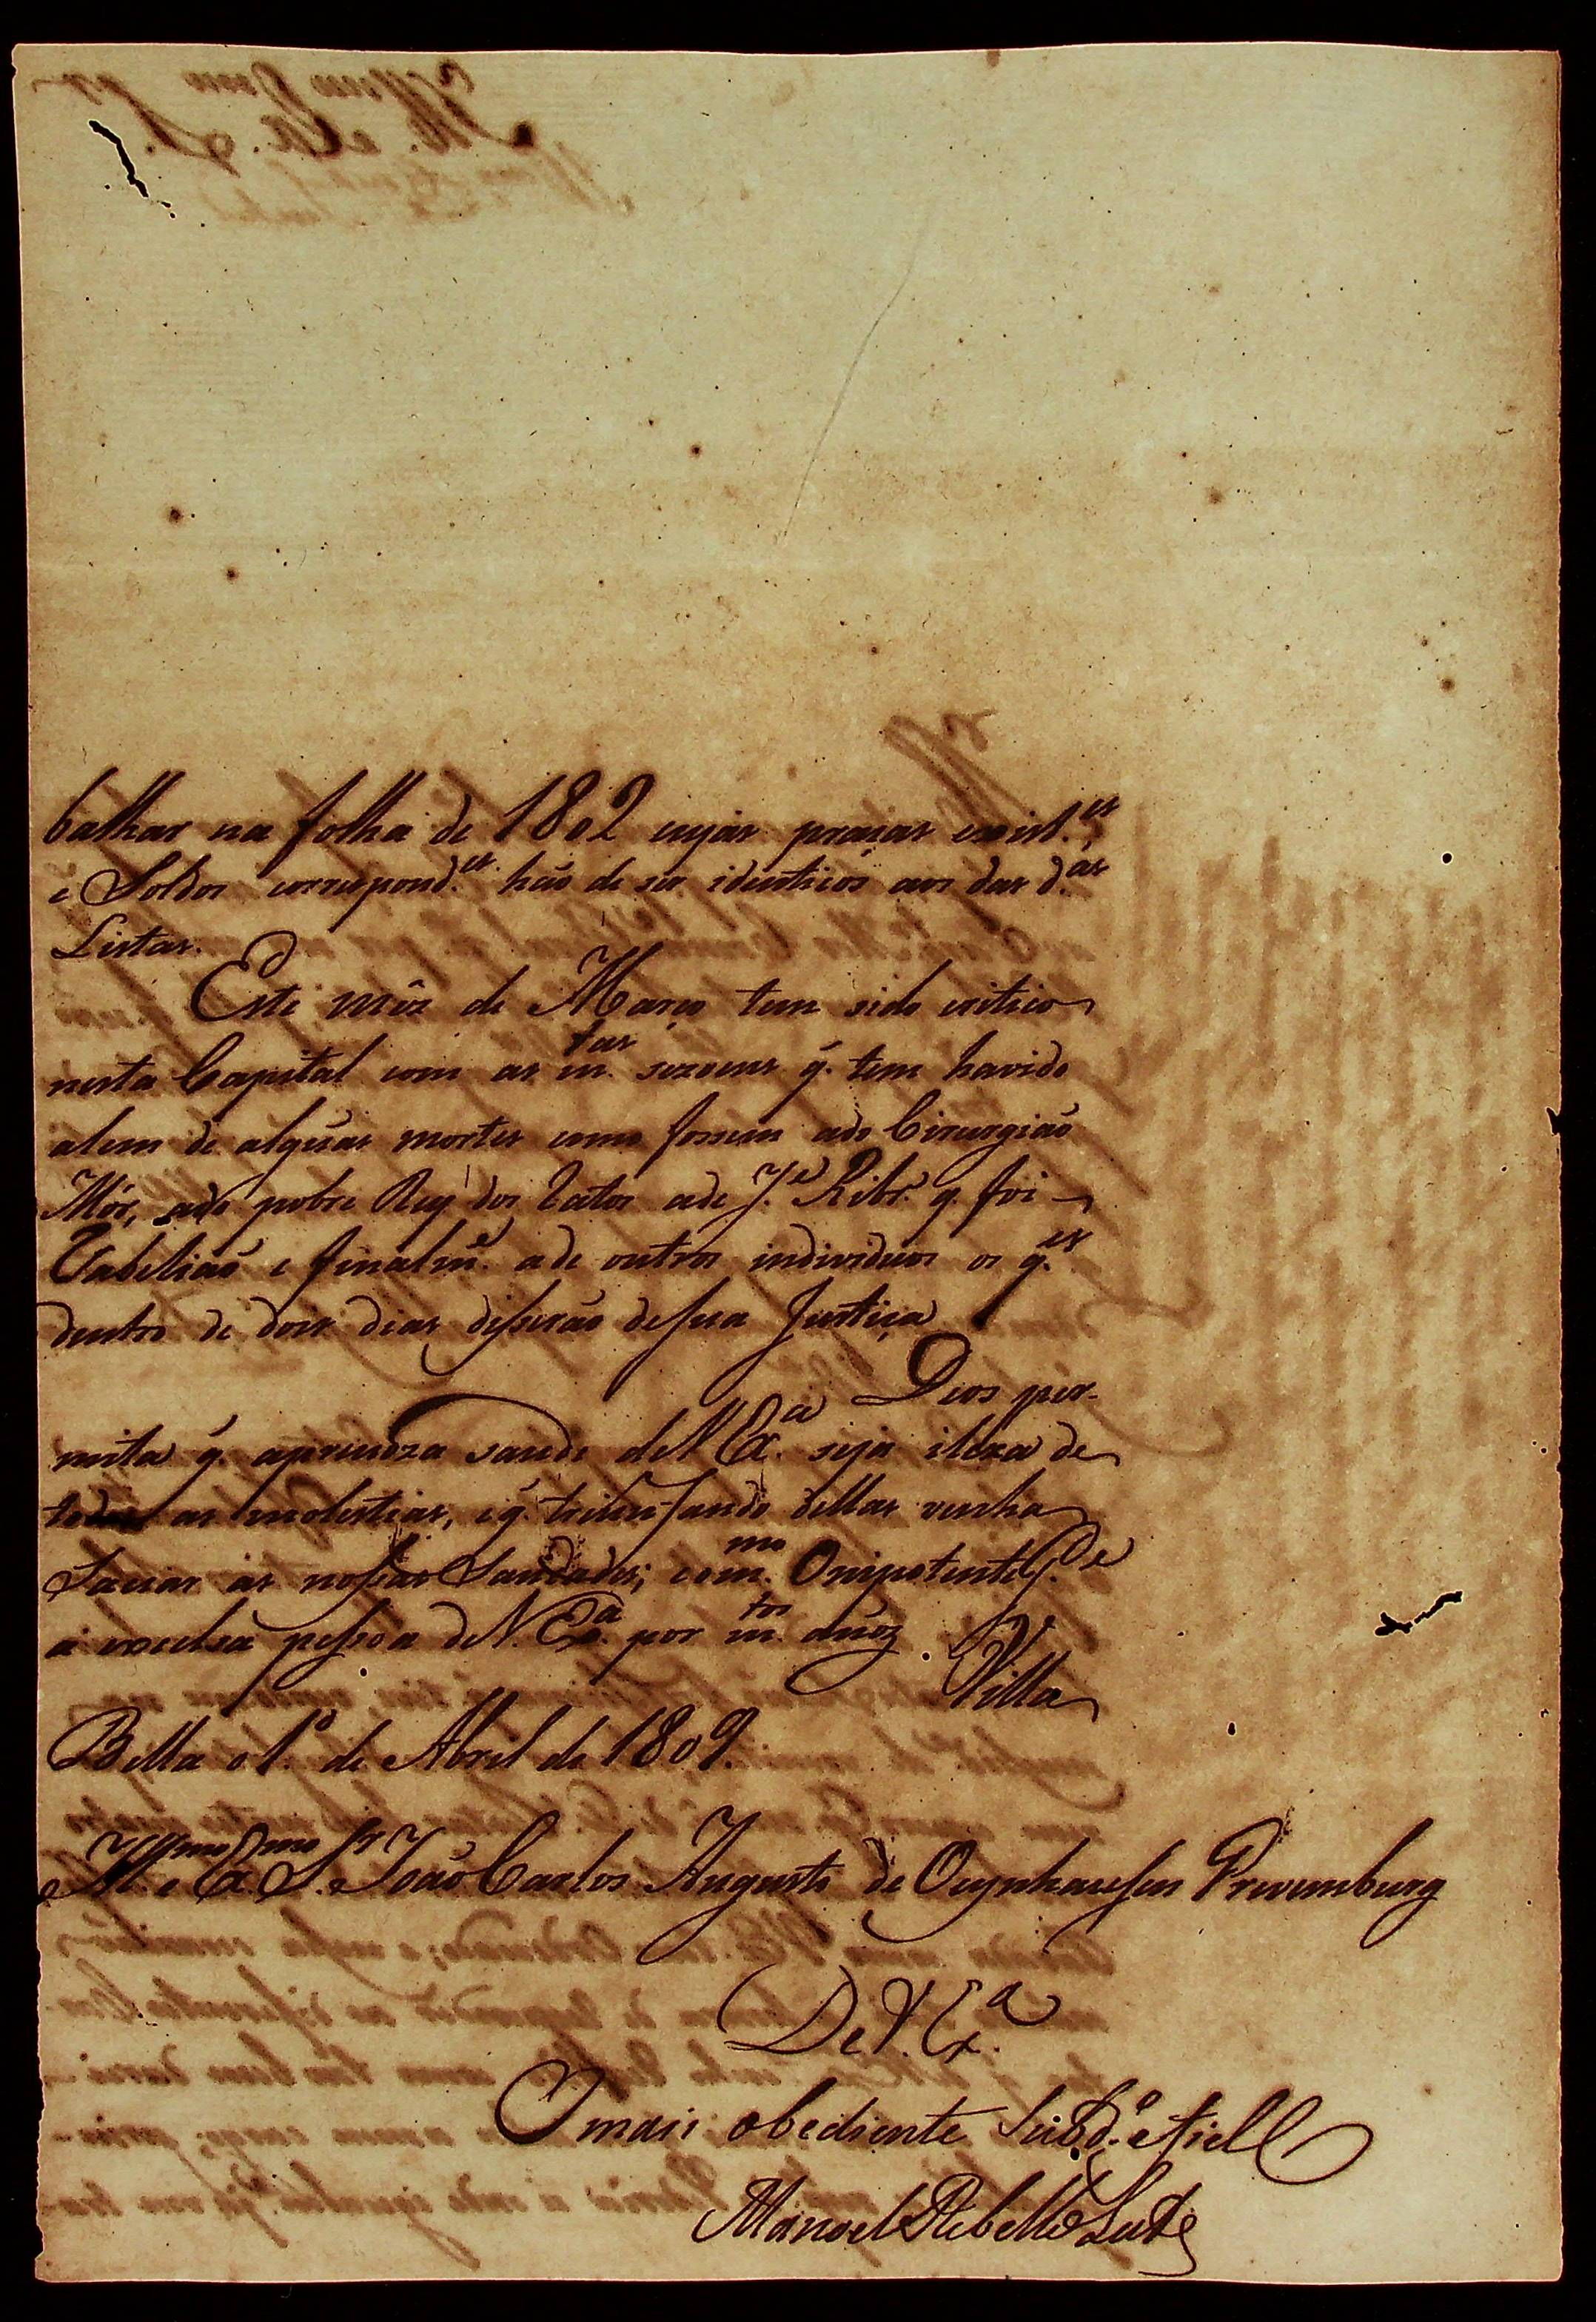 balhar na folha de 1802 cujas praças exist.es,
e Soldos correspond.es haõ de ser identicos aos das d.as
Listas.
Este mês de Março tem sido critico
nesta Capital com as m.tas sezoens q̃. tem havido
alem de algũas mortes como fossem ado Cirurgiaõ
Mór, ado pobre Rey dos Tatos ade J.e Ribr.o q. foi
Tabeliaõ e finalm.e ade outros individuos os q.es
dentro de dois dias disseraõ desua Justiça
Deos per-
mita q̃. apreuoza saude deV Ex.a seja ileza de
todas as molestias, e q̃. triunfando dellas venha
Saciar as nossas Saudades; eom.mo Onipotente G.de
a excelsa pessoa deV. Ex.a por m.tos añoz Villa
Bella o 1.o de Abril de 1809.
Ill.mo e Ex.mo S.r João Carlos Augusto de Oeynhausen Grevemburg
DeV. Ex.a
O mais obediente Subd.o e fiel C
Manoel Rebello Leite